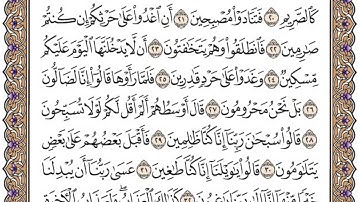 كَٱلصَّرِيمِ ٢٠ فَتَنَادَوْا۟ مُصْبِحِينَ ٢١ أَنِ ٱغْدُوا۟ عَلَىٰ حَرْثِكُمْ إِن كُنتُمْ
صَـٰرِمِينَ ٢٢ فَٱنطَلَقُوا۟ وَهُمْ يَتَخَـٰفَتُونَ ٢٣ أَن لَّا يَدْخُلَنَّهَا ٱلْيَوْمَ عَلَيْكُم
مِّسْكِينٌ ٢٤ وَغَدَوْا۟ عَلَىٰ حَرْدٍ قَـٰدِرِينَ ٢٥ فَلَمَّا رَأَوْهَا قَالُوٓا۟ إِنَّا لَضَآلُّونَ
٢٦ بَلْ نَحْنُ مَحْرُومُونَ ٢٧ قَالَ أَوْسَطُهُمْ أَلَمْ أَقُل لَّكُمْ لَوْلَا تُسَبِّحُونَ
٢٨ قَالُوا۟ سُبْحَـٰنَ رَبِّنَآ إِنَّا كُنَّا ظَـٰلِمِينَ ٢٩ فَأَقْبَلَ بَعْضُهُمْ عَلَىٰ بَعْضٍ
يَتَلَـٰوَمُونَ ٣٠ قَالُوا۟ يَـٰوَيْلَنَآ إِنَّا كُنَّا طَـٰغِينَ ٣١ عَسَىٰ رَبُّنَآ أَن يُبْدِلَنَا